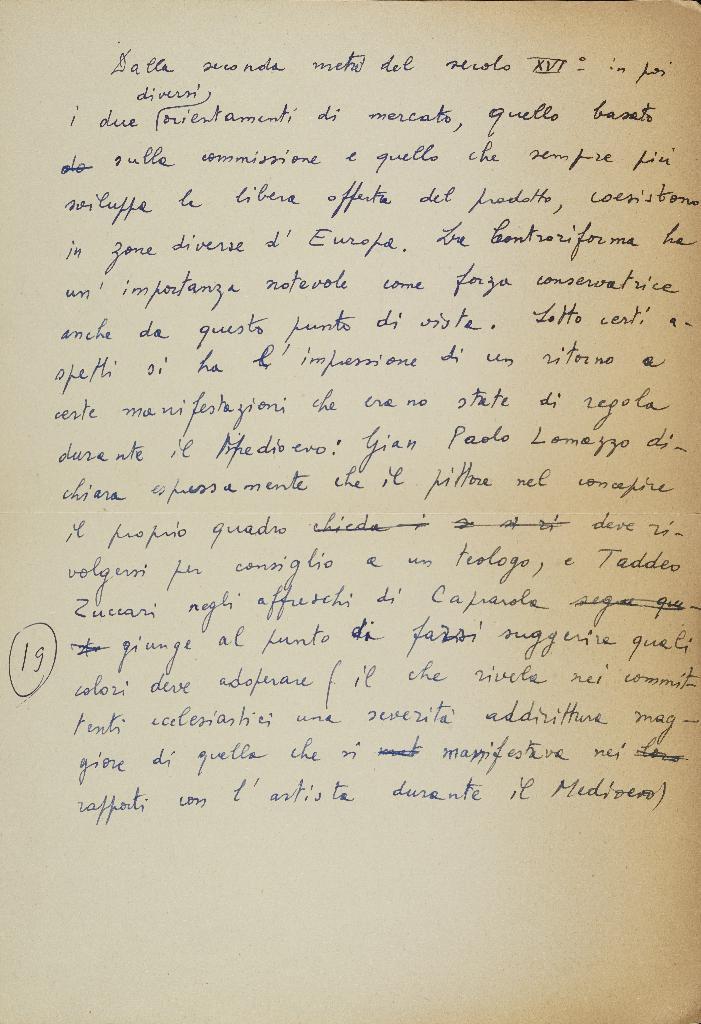 Dalla seconda metà del secolo XVI° in poi
diversi
i due orientamenti di mercato, quello basato
do sulla commissione e quello che sempre più
sviluppa la libera offerta del prodotto, coesistono
in zone diverse d' Europa. La Controriforma ha
un' importanza notevole come forza conservatrice
anche da questo punto di vista. Sotto certi a-
spetti si ha l' impressione di un ritorno a
certe manifestazioni che erano state di regola
durante il Medioevo: Gian Paolo Lomazzo di-
chiara espressamente che il pittore nel concepire
il proprio quadro chieda i deve ri-
volgersi per consiglio a un teologo, e Taddeo
Zuccari negli affreschi di Caprarola segue que-
giunge al punto di farsi suggerire quali
19
colori deve adoperare (il che rivela nei commit-
tenti ecclesiastici una severità addirittura mag-
giore di quella che si manifestava nei loro
rapporti con l' artista durante il Medioevo)